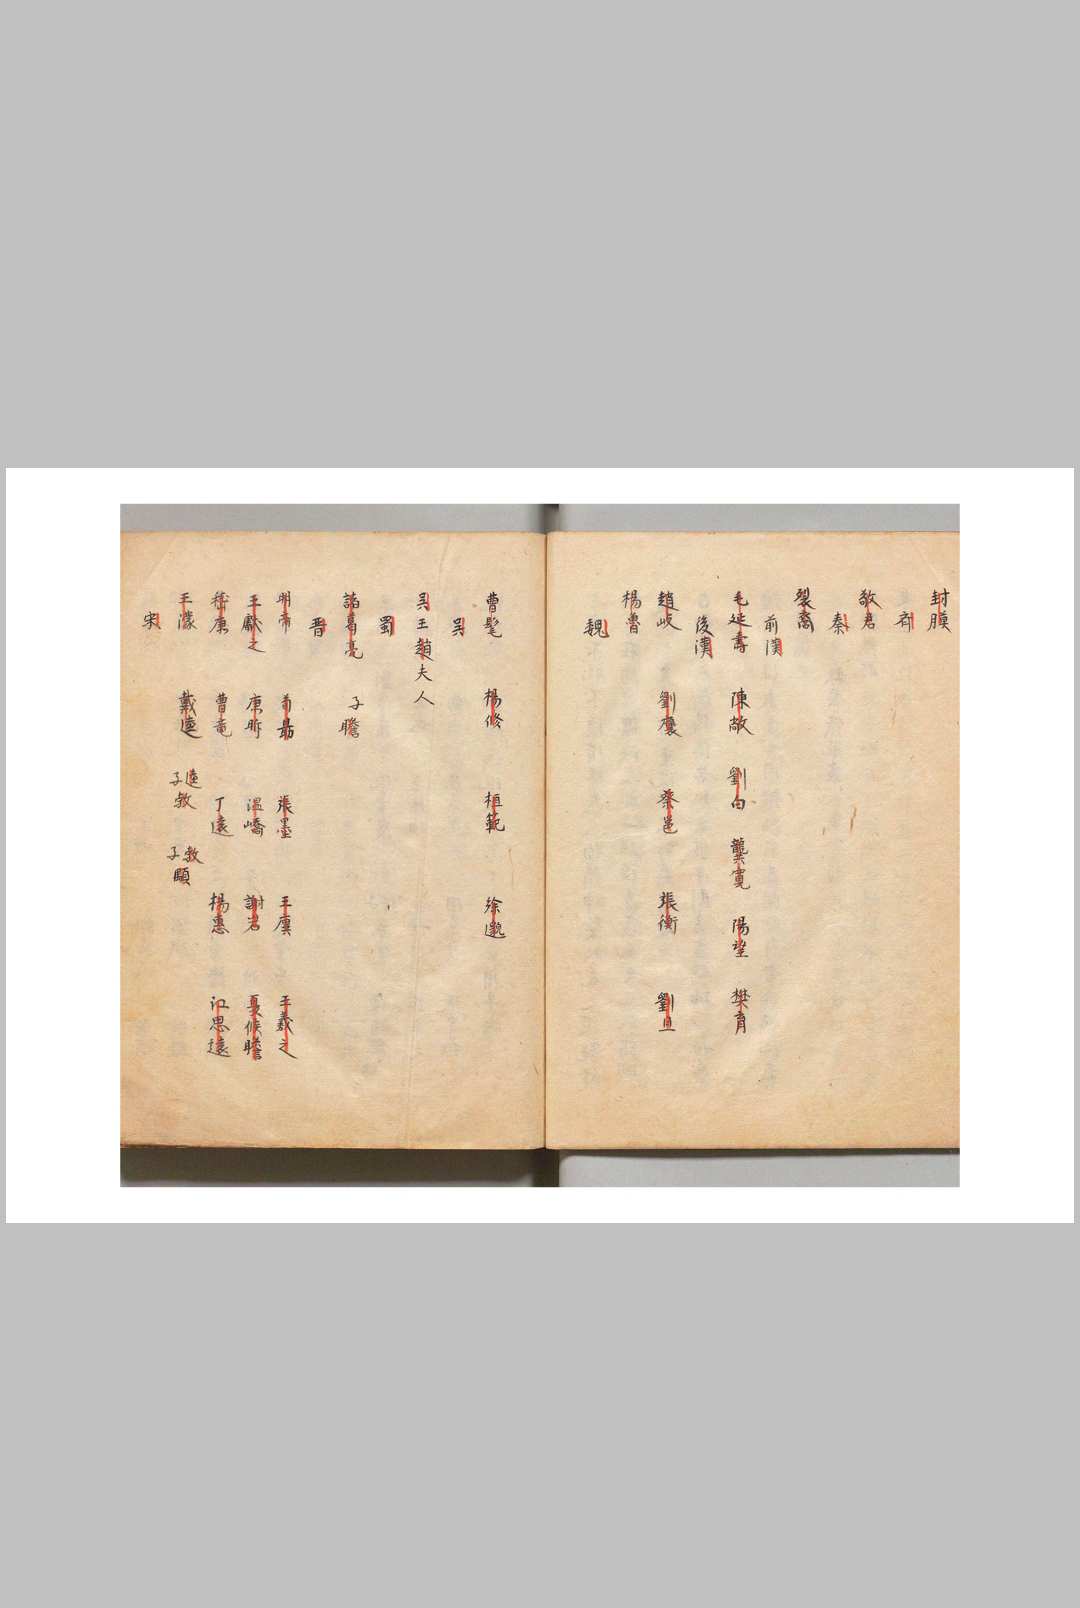 封膜
齊
敬君
秦
裂裔
前漢
毛延壽 陳敞 劉白 龔寬 陽望 樊育
後漢
趙岐 劉褒 蔡邕 張衡 劉旦
楊魯
魏
曹髦 楊修 桓範 徐邈
吳
吳王趙夫人
蜀
諸葛亮 子瞻
晋
明帝 荀勗 張墨 王廙 王羲之
王獻之 康昕 温嶠 謝岩 夏候瞻
嵇康 曹竜 丁遠 楊惠 江思遠
王濛 戴逵 逵子敦 敦子顒
宋